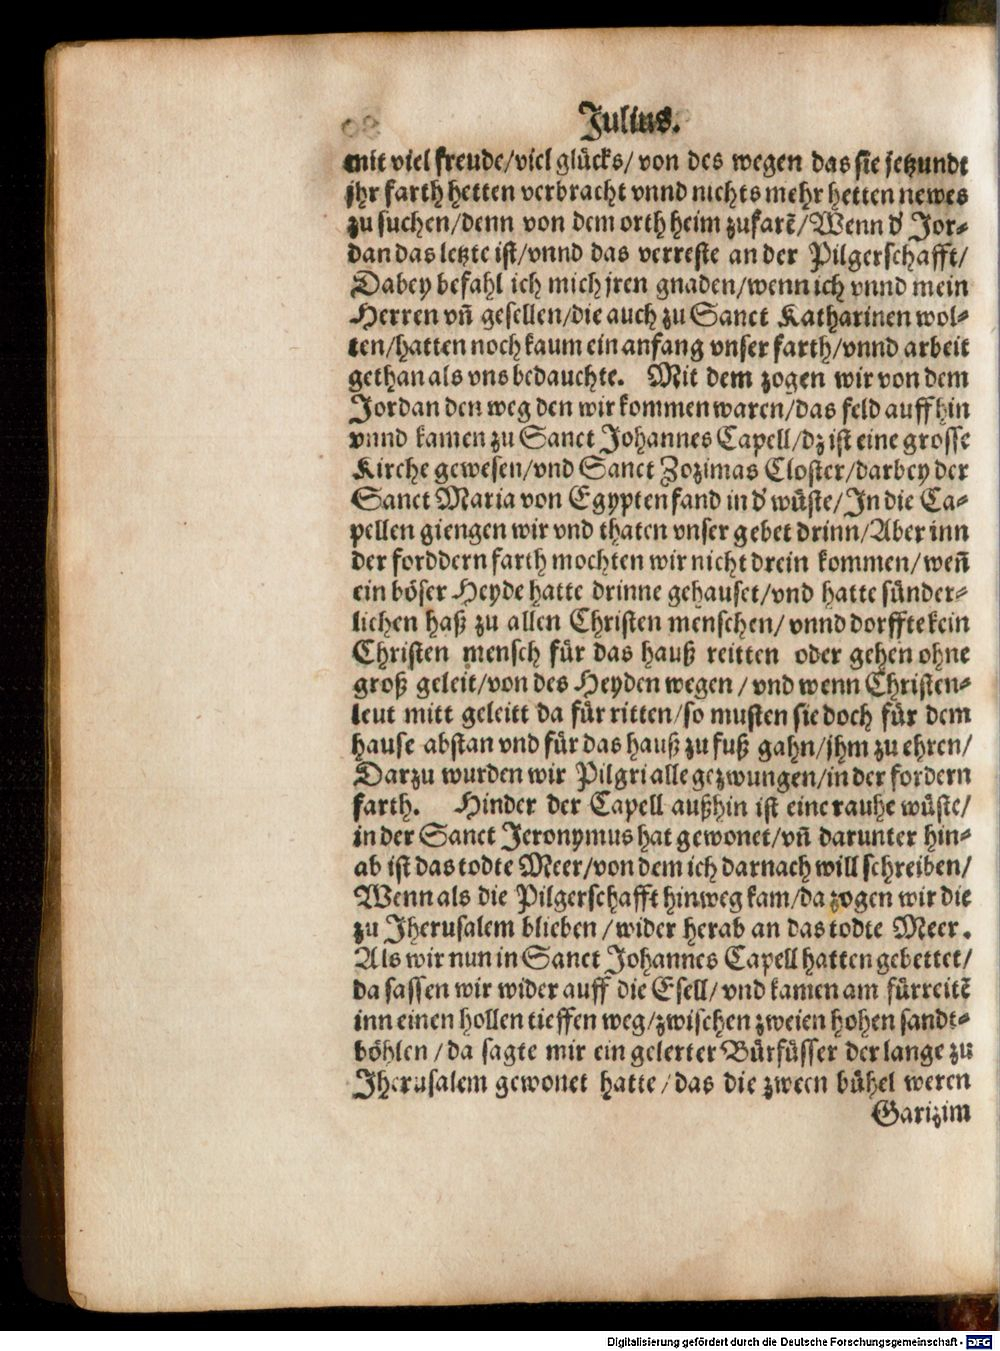 Julius.
mit viel freude/viel glücks/ von des wegen das sie jetzundt
jhr farth hetten verbracht vnnd nichts mehr hetten newes
zu suchen/denn von dem orth heim zufarẽ/Wenn d' Jor-
dan das letzte ist/vnnd das verreste an der Pilgerschafft/
Dabey befahl ich mich jren gnaden/wenn ich vnnd mein
Herren vñ gesellen/die auch zu Sanct Katharinen wol-
ten/hatten noch kaum ein anfang vnser farth/vnnd arbeit
gethan als vns bedauchte. Mit dem zogen wir von dem
Jordan den weg den wir kommen waren/das feld auff hin
vnnd kamen zu Sanct Johannes Capell/dz ist eine grosse
Kirche gewesen/vnd Sanct Zozimas Closter/darbey der
Sanct Maria von Egypten fand in d' wüste/In die Ca-
pellen giengen wir vnd thaten vnser gebet drinn/Aber inn
der forddern farth mochten wir nicht drein kommen/weñ
ein böser Heyde hatte drinne gehauset/vnd hatte sünder-
lichen haß zu allen Christen menschen/ vnnd dorffte kein
Christen mensch für das hauß reitten oder gehen ohne
groß geleit/von des Heyden wegen / vnd wenn Christen-
leut mitt geleitt da für ritten/so musten sie doch für dem
hause abstan vnd für das hauß zu fuß gahn/jhm zu ehren/
Darzu wurden wir Pilgri alle gezwungen/in der fordern
farth. Hinder der Capell außhin ist eine rauhe wüste/
in der Sanct Jeronymus hat gewonet/vñ darunter hin-
ab ist das todte Meer/von dem ich darnach will schreiben/
Wenn als die Pilgerschafft hinweg kam/da zogen wir die
zu Jherusalem blieben / wider herab an das todte Meer.
Als wir nun in Sanct Johannes Capell hatten gebettet/
da sassen wir wider auff die Esell/ vnd kamen am fürreitẽ
inn einen hollen tieffen weg/zwischen zweien hohen sandt-
böhlen / da sagte mir ein gelerter Bürfüsser der lange zu
Jherusalem gewonet hatte / das die zween bühel weren
Garizim
Digitalisierung gefördert durch die Deutsche Forschungsgemeinschaft - DFG